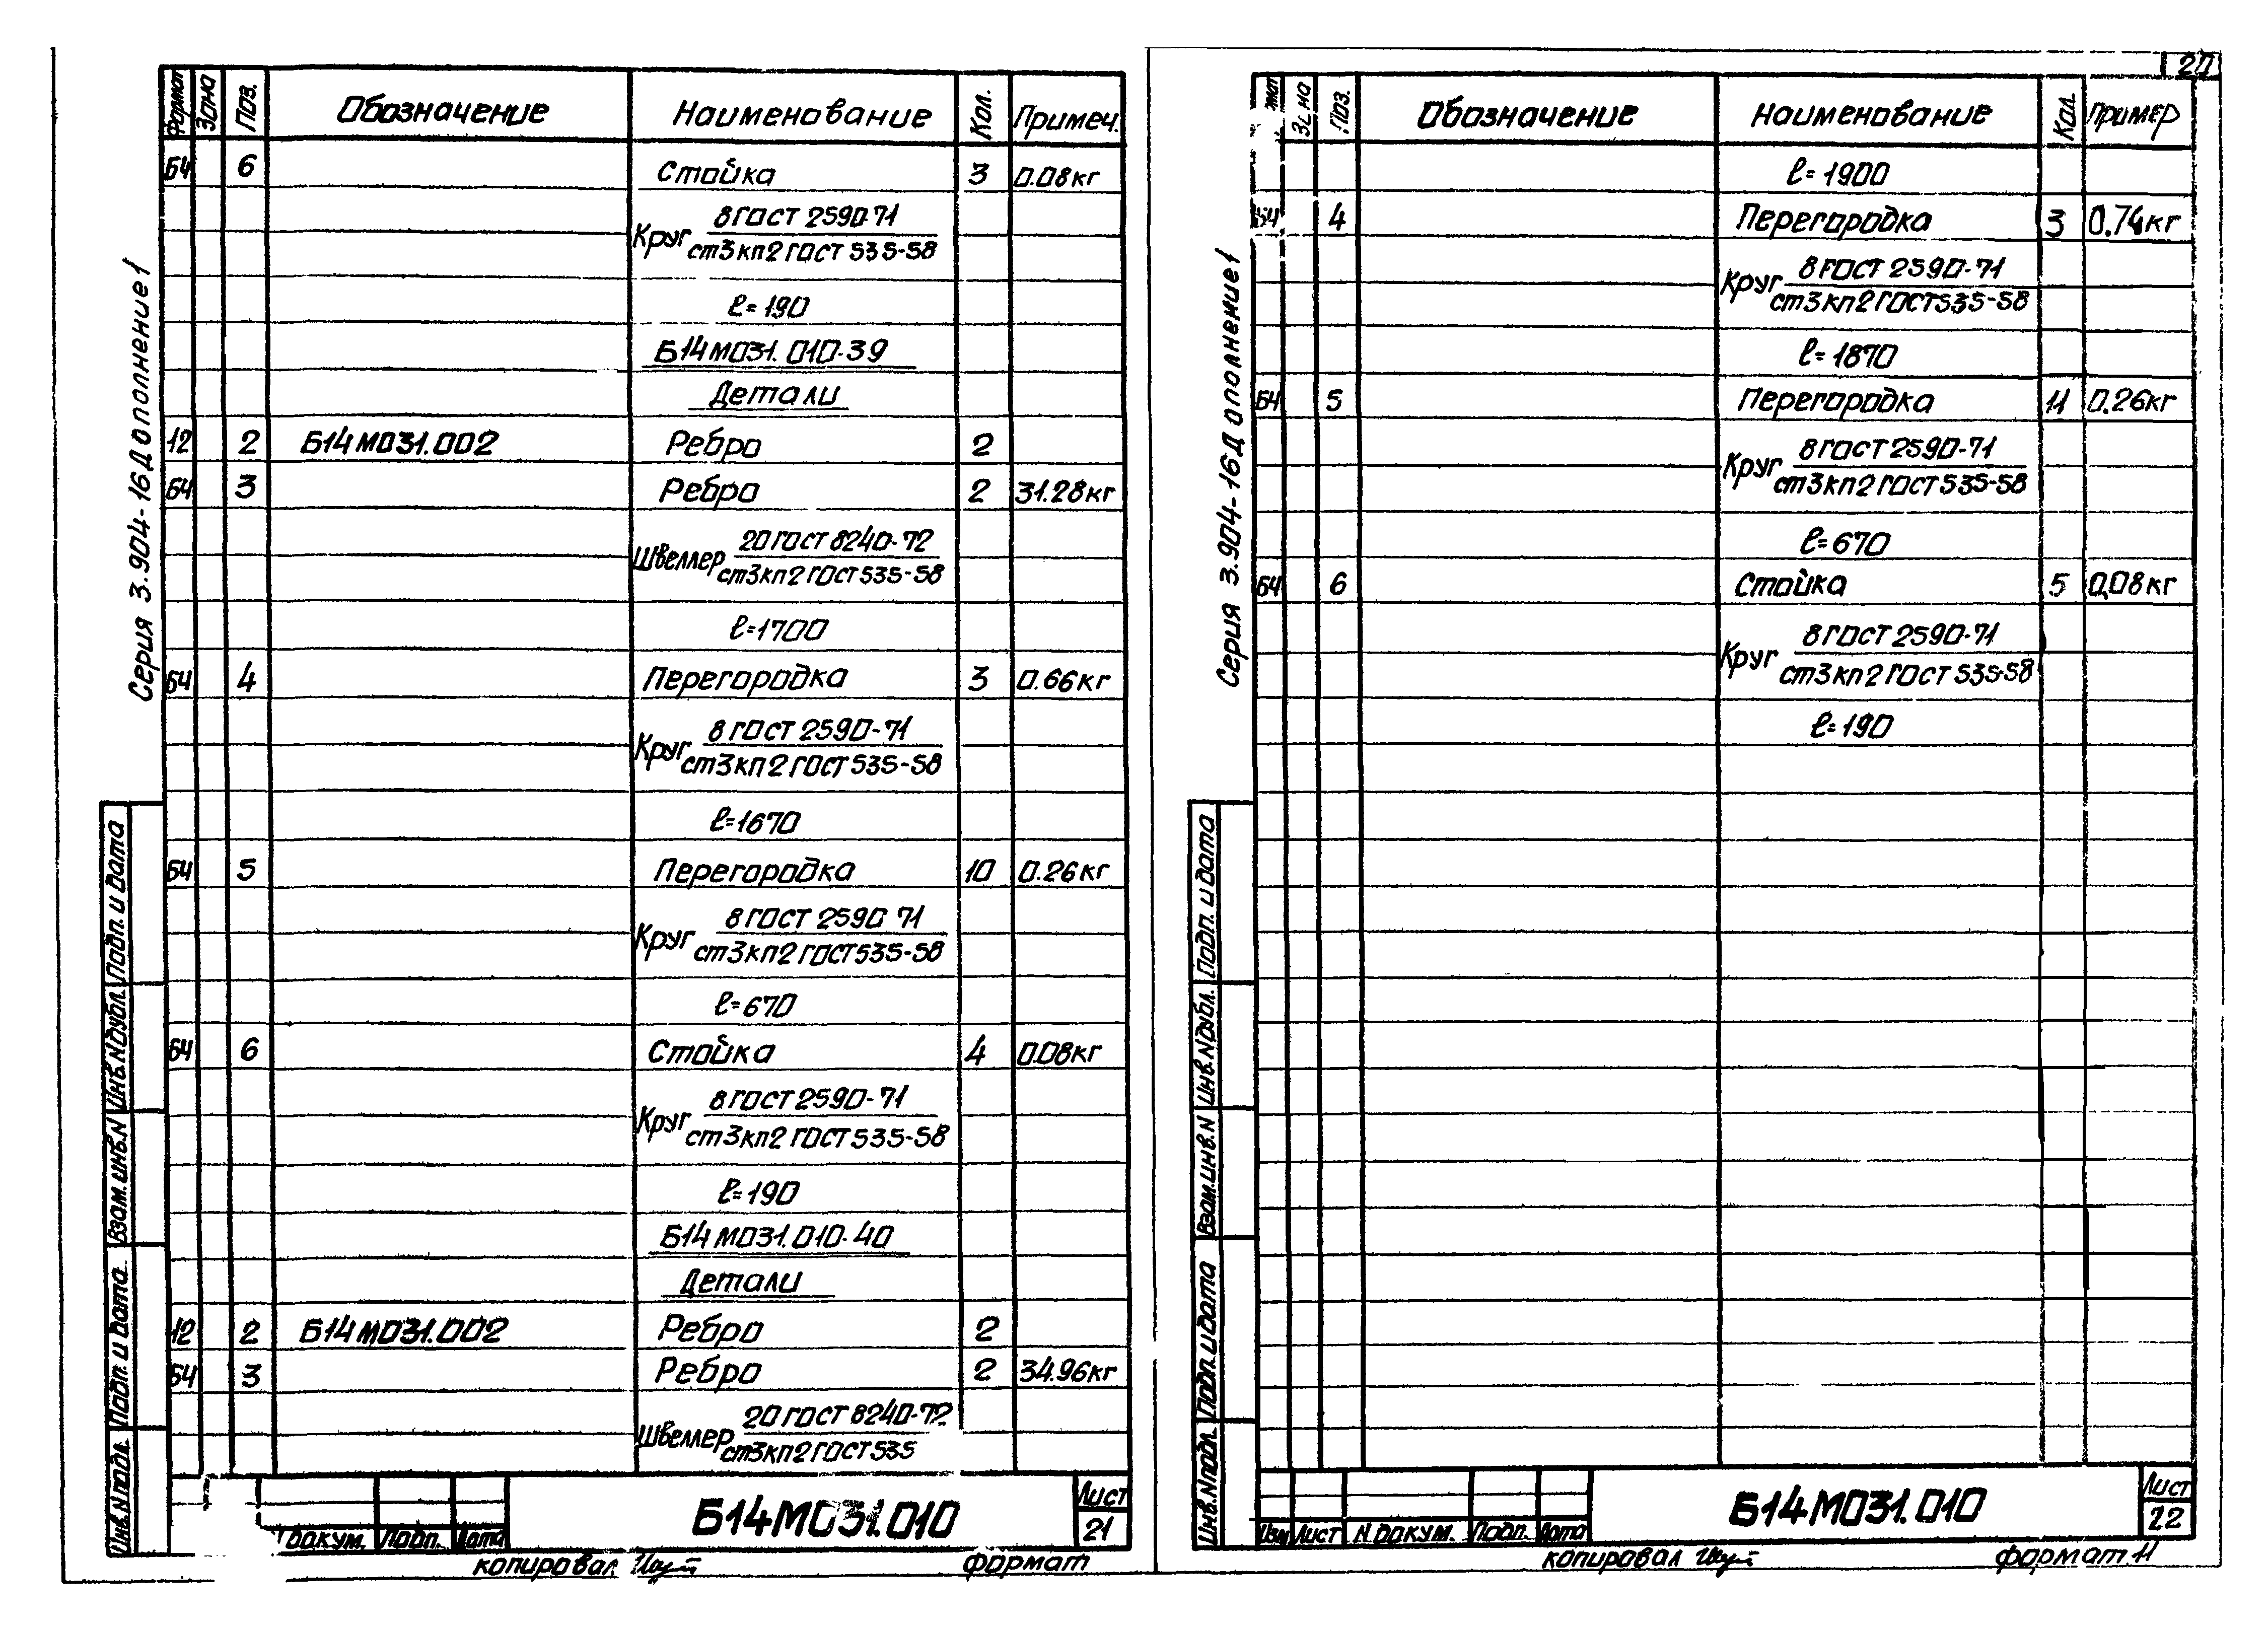 27
Серия 3.904-16 Дополнение 1
Формат Зона Поз. Обозначение Наименование Кол. Примеч.
Б4 6 Стойка 3 0.08кг
Круг 8 ГОСТ 2590-71
ст3кп2 ГОСТ 535-58
ℓ=190
Б14М031.010-39
Детали
12 2 Б14М031.002 Ребро 2
Б4 3 Ребро 2 31.28кг
Швеллер 20 ГОСТ 8240-72
ст3кп2 ГОСТ 535-58
ℓ=1700
Б4 4 Перегородка 3 0.66кг
Круг 8 ГОСТ 2590-71
ст3кп2 ГОСТ 535-58
ℓ=1670
Б4 5 Перегородка 10 0.26кг
Круг 8 ГОСТ 2590 71
ст3кп2 ГОСТ 535-58
ℓ=670
Б4 6 Стойка 4 0.08кг
Круг 8 ГОСТ 2590-71
ст3кп2 ГОСТ 535-58
ℓ=190
Б14М031.010-40
Детали
12 2 Б14М031.002 Ребро 2
Б4 3 Ребро 2 34.96кг
Швеллер 20 ГОСТ 8240-72
ст3кп2 ГОСТ 535
Инв.N подл. Подп. и дата Взам. инв.N Инв.N дубл. Подп. и дата
докум. Подп. Дата
Б14М031.010
Лист
21
копировал
формат
Серия 3.904-16 Дополнение 1
мат Зона Поз. Обозначение Наименование Кол. Пример
ℓ=1900
Б4 4 Перегородка 3 0.74кг
Круг 8 ГОСТ 2590-71
ст3кп2 ГОСТ 535-58
ℓ=1870
Б4 5 Перегородка 11 0.26кг
Круг 8 ГОСТ 2590-71
ст3кп2 ГОСТ 535-58
ℓ=670
Б4 6 Стойка 5 0,08кг
Круг 8 ГОСТ 2590-71
ст3кп2 ГОСТ 535-58
ℓ=190
Инв.N подл. Подп. и дата Взам. инв.N Инв.N дубл. Подп. и дата
Изм Лист N. докум. Подп. Дата
Б14М031.010
Лист
22
копировал
формат 11